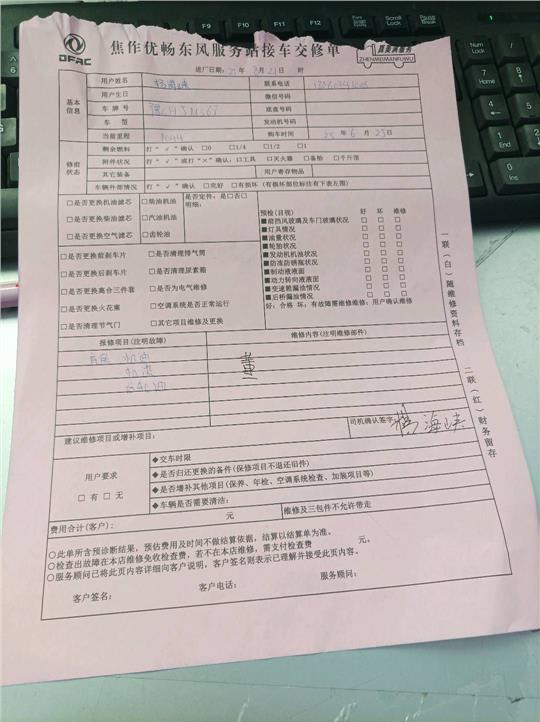 DFAC
焦作优畅东风服务站接车交修单
臻美满服务
ZHENMEIMANFUWU
进厂日期: 21年 月21日 时
基本信息
用户姓名 联系电话
用户生日 微信号码
车牌号 底盘号码
车型 发动机号码
当前里程 购车时间 25年6月25日
修前状态
剩余燃料 打"√"确认 □0 □1/4 □1/2 □1
附件状况 打"√"或打"×"确认: □工具 □灭火器 □备胎 □千斤顶
其它装备 用户寄存物品
车辆外部情况 打"√"确认 □完好 □有损坏 (有损坏部位标注有下表左图)
□是否更换机油滤芯 □柴油机油 是否定件: □是□否□
明细:
□是否更换柴油滤芯 □汽油机油
□是否更换空气滤芯 □齿轮油
□是否更换前刹车片 □是否清理排气筒
□是否更换后刹车片 □是否清理尿素箱
□是否更换离合三件套 □是否为电气维修
□是否更换火花塞 □空调系统是否正常运行
□是否清理节气门 □其它项目维修及更换
预检(目视) 好 坏 维修
■前挡风玻璃及车门玻璃状况 □ □ □
■灯具情况 □ □ □
■油量状况 □ □ □
■轮胎状况 □ □ □
■发动机机油状况 □ □ □
■防冻防锈瓶状况 □ □ □
■制动液液面 □ □ □
■动力转向液液面 □ □ □
■变速箱漏油情况 □ □ □
■后桥漏油情况 □ □ □
好: 合格 坏: 有故障需维修维修: 用户确认维修
报修项目(注明故障) 维修内容(注明维修部件)
机油
机滤
司机确认签字: 杨海峡
建议维修项目或增补项目:
用户要求
□有 □无
◆交车时限
◆是否归还更换的备件(保修项目不退还旧件)
◆是否增补其他项目(保养、年检、空调系统检查、加装项目等)
◆车辆是否需要清洁:
费用合计(客户): 元 维修及三包件不允许带走
○此单所含预诊断结果, 预估费用及时间不做结算依据, 结算以结算单为准。
○检查出故障在本店维修免收检查费, 若不在本店维修, 需支付检查费 元。
○服务顾问已将此页内容详细向客户说明, 客户签名则表示已理解并接受此页内容。
客户签名: 客户电话: 服务顾问:
一联(白)随维修资料存档
二联(红)财务留存
F6
F7
F8
F9
F10
F11
F12
Scroll Lock
Pause Break